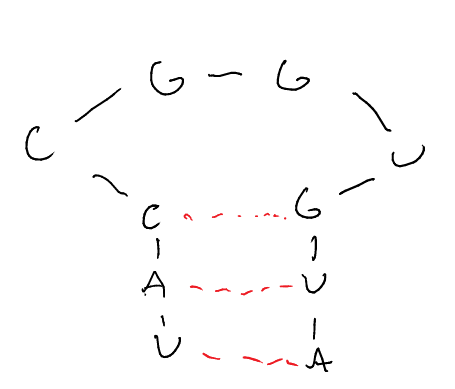 G G
C U
C G
A U
U A